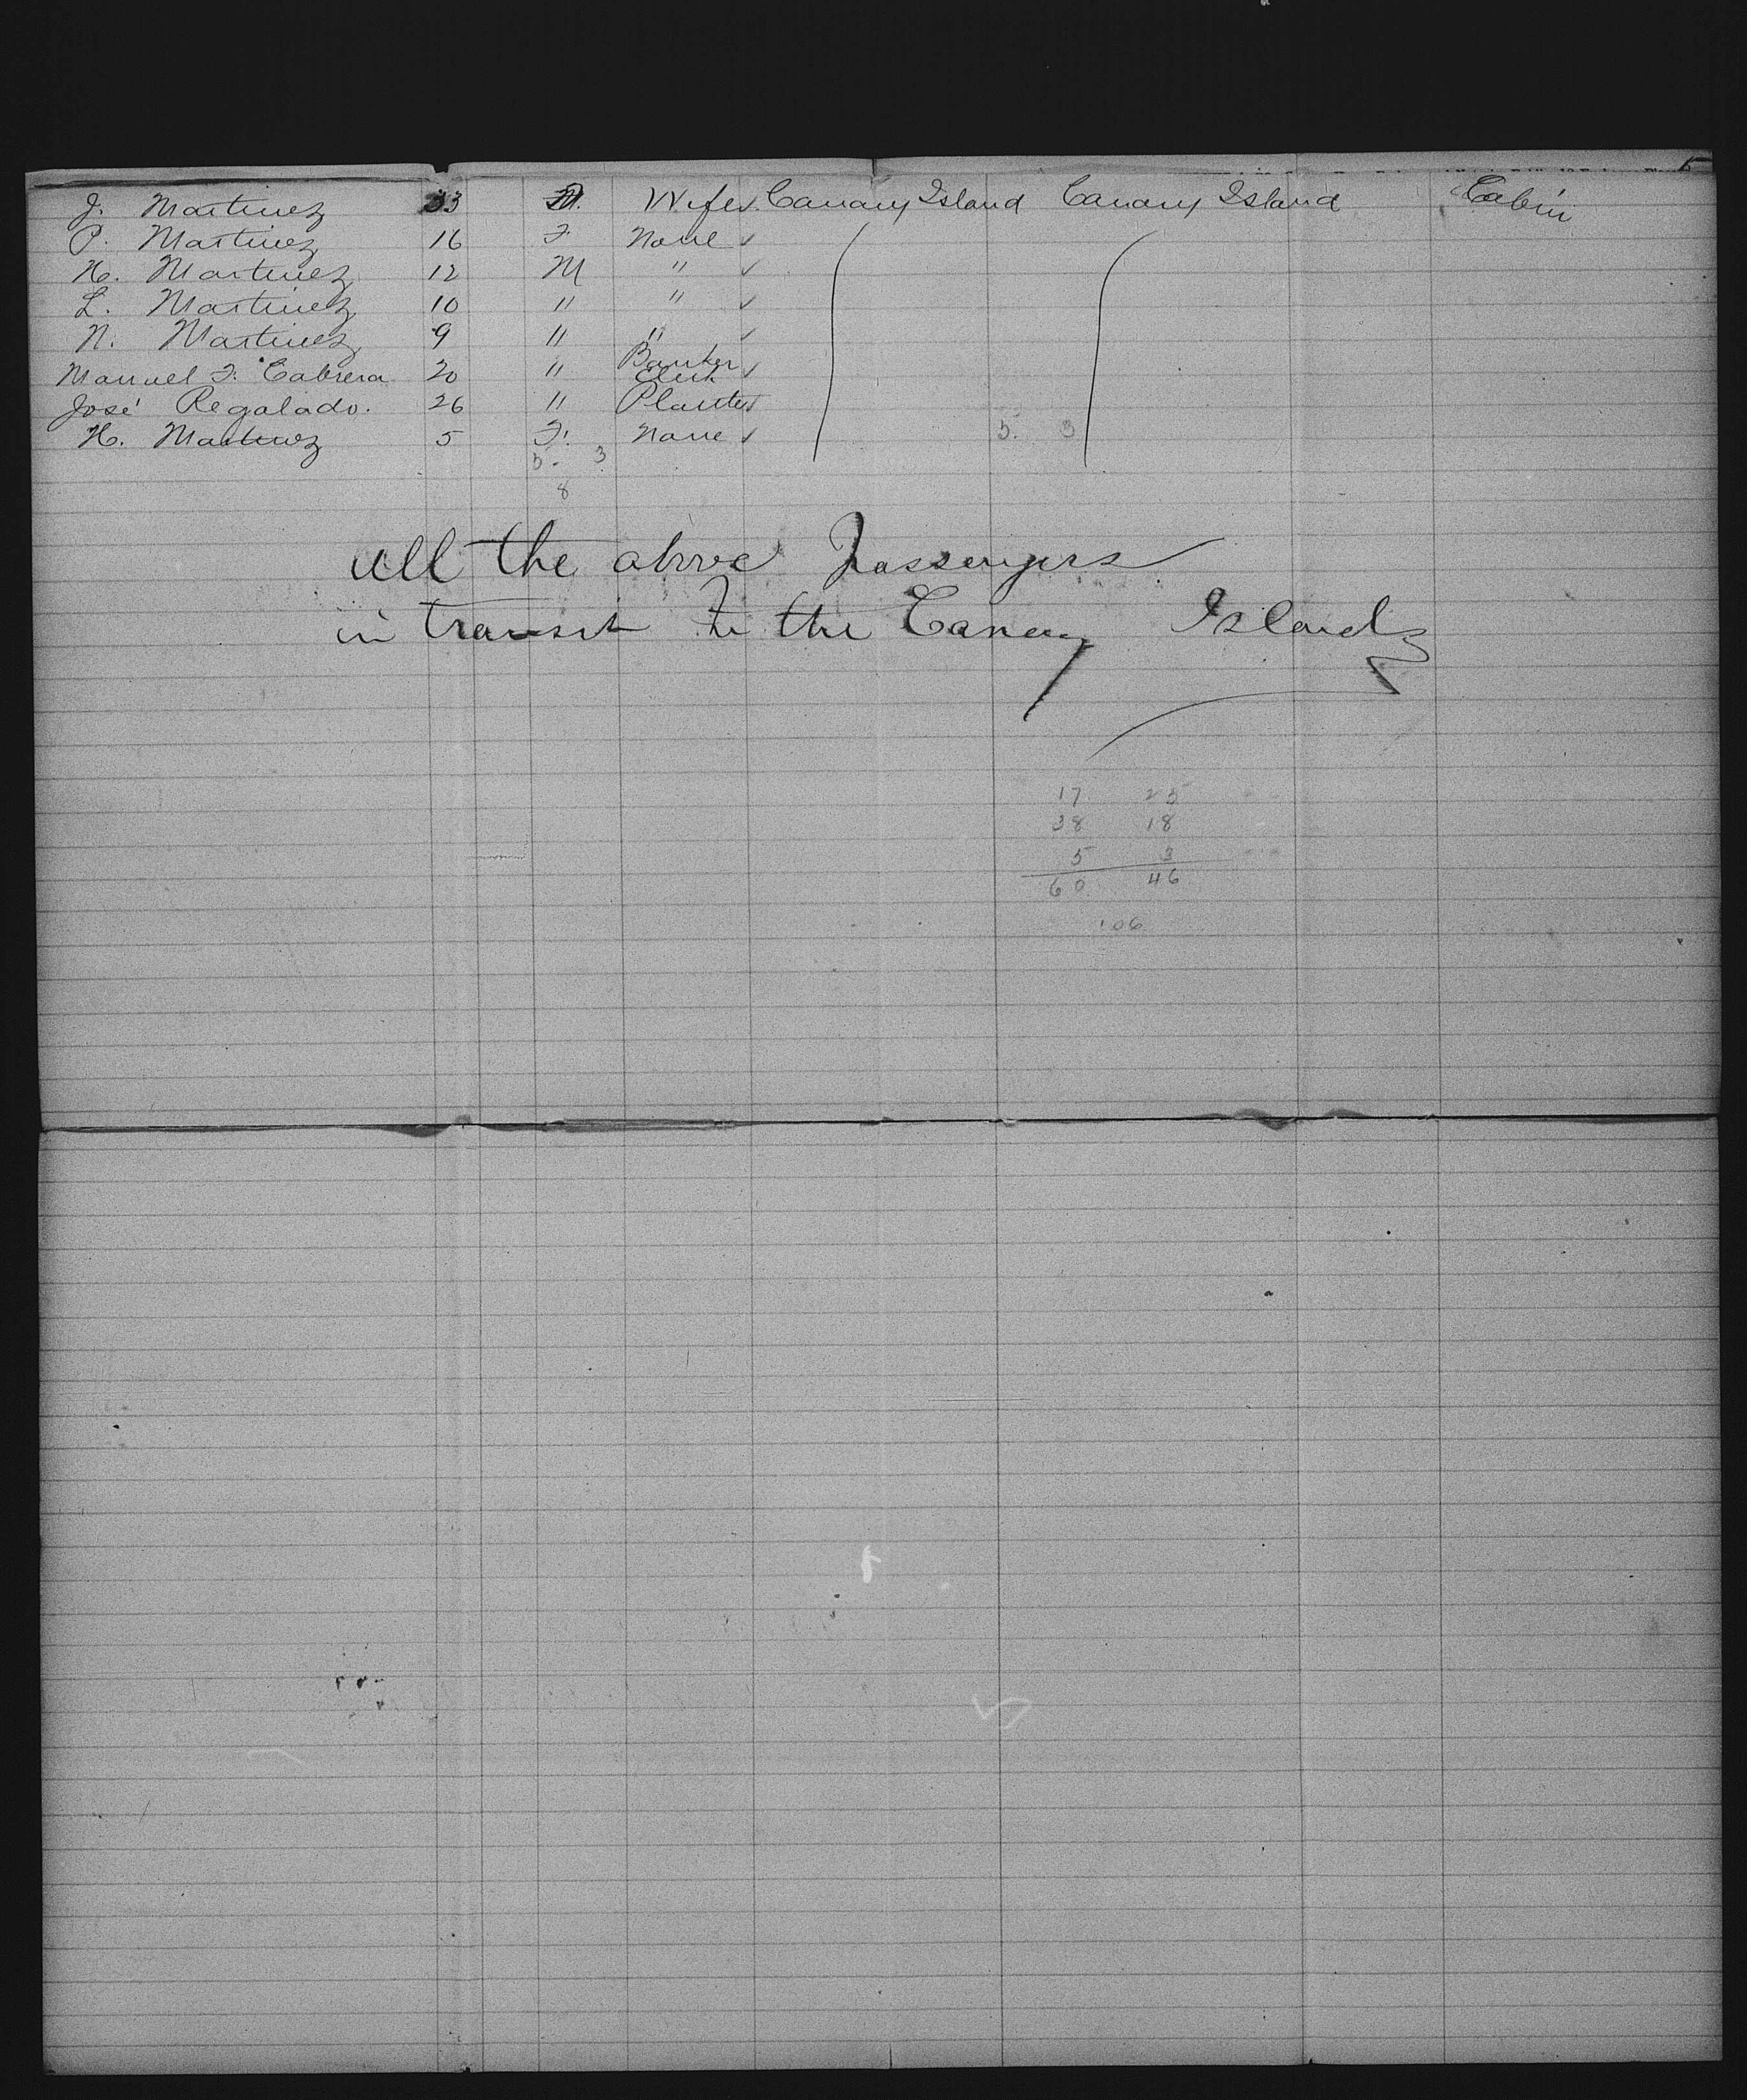 5
J. Martinez 33 Wife ✓ Canary Island Canary Island Cabin
P. Martinez 16 F. None ✓
H. Martinez 12 M " ✓
L. Martinez 10 " " ✓
N. Martinez 9 " " ✓
Manuel F. Cabrera 20 " Banker Clerk ✓
José Regalado. 26 " Planter ✓
H. Martinez 5 F. None ✓ 5. 3
5. 3
8
all the above Passengers
in transit to the Canary Islands
17 25
38 18
5 3
60 46
106